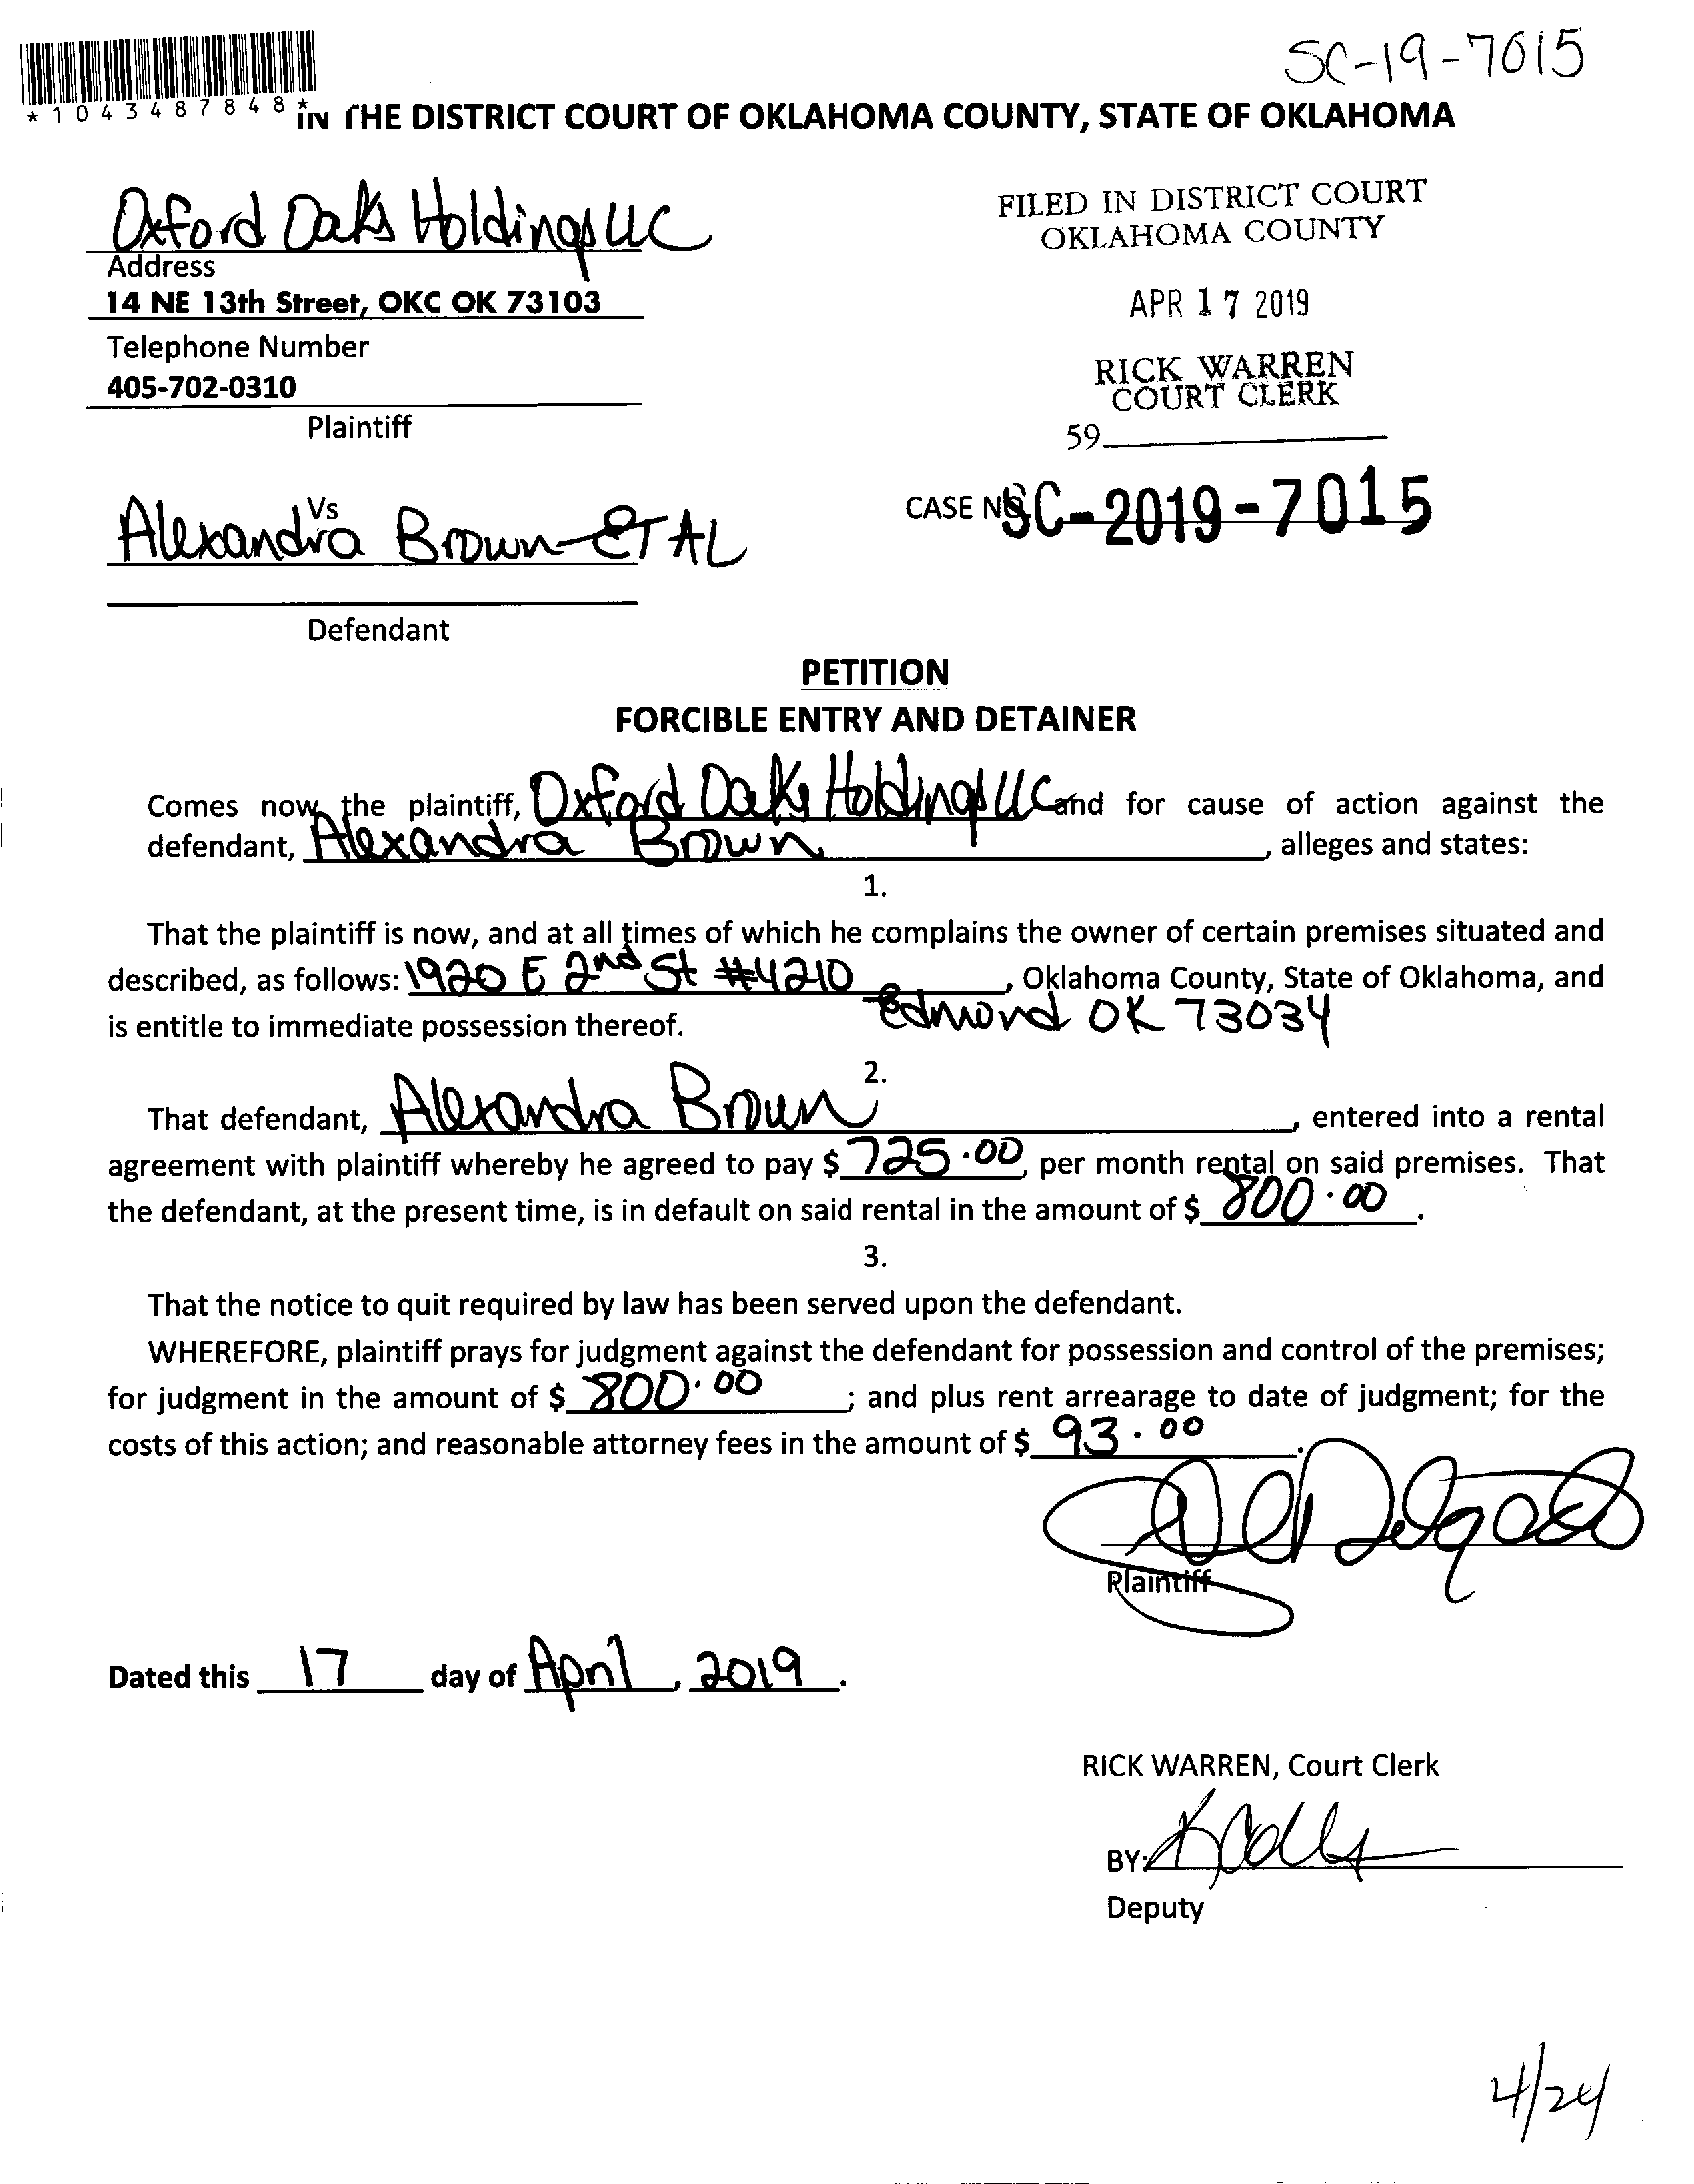 SC-19-7015
*1043487848*
IN THE DISTRICT COURT OF OKLAHOMA COUNTY, STATE OF OKLAHOMA
Oxford Oaks Holdings LLC
Address
14 NE 13th Street, OKC OK 73103
Telephone Number
405-702-0310
Plaintiff
FILED IN DISTRICT COURT
OKLAHOMA COUNTY
APR 17 2019
RICK WARREN
COURT CLERK
59
Vs
CASE NO. SC-2019-7015
Alexandra Brown ET AL
Defendant
PETITION
FORCIBLE ENTRY AND DETAINER
Comes now the plaintiff, Oxford Oaks Holdings LLC and for cause of action against the
defendant, Alexandra Brown, alleges and states:
1.
That the plaintiff is now, and at all times of which he complains the owner of certain premises situated and
described, as follows: 1920 E 2nd St #4210, Oklahoma County, State of Oklahoma, and
is entitle to immediate possession thereof. Edmond OK 73034
2.
That defendant, Alexandra Brown, entered into a rental
agreement with plaintiff whereby he agreed to pay $ 725.00, per month rental on said premises. That
the defendant, at the present time, is in default on said rental in the amount of $ 800.00.
3.
That the notice to quit required by law has been served upon the defendant.
WHEREFORE, plaintiff prays for judgment against the defendant for possession and control of the premises;
for judgment in the amount of $ 800.00; and plus rent arrearage to date of judgment; for the
costs of this action; and reasonable attorney fees in the amount of $ 93.00.
Delgado
Plaintiff
Dated this 17 day of April, 2019.
RICK WARREN, Court Clerk
BY:
Deputy
4/24